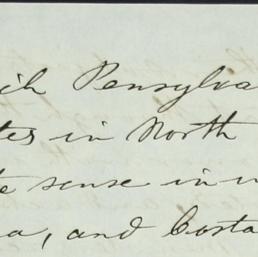 ich Pensylva
tes in North
te sense in
a, and Costa